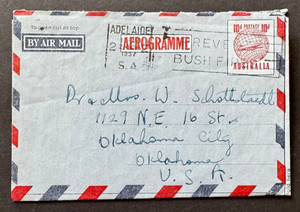 To open cut at top
BY AIR MAIL
ADELAIDE
2
1957
S.A.
AEROGRAMME
PREVE
BUSH F
10D POSTAGE 10D
AUSTRALIA
Dr & Mrs. W.
1129 N.E. 16 St.
Oklahoma City
Oklahoma
U.S.A.